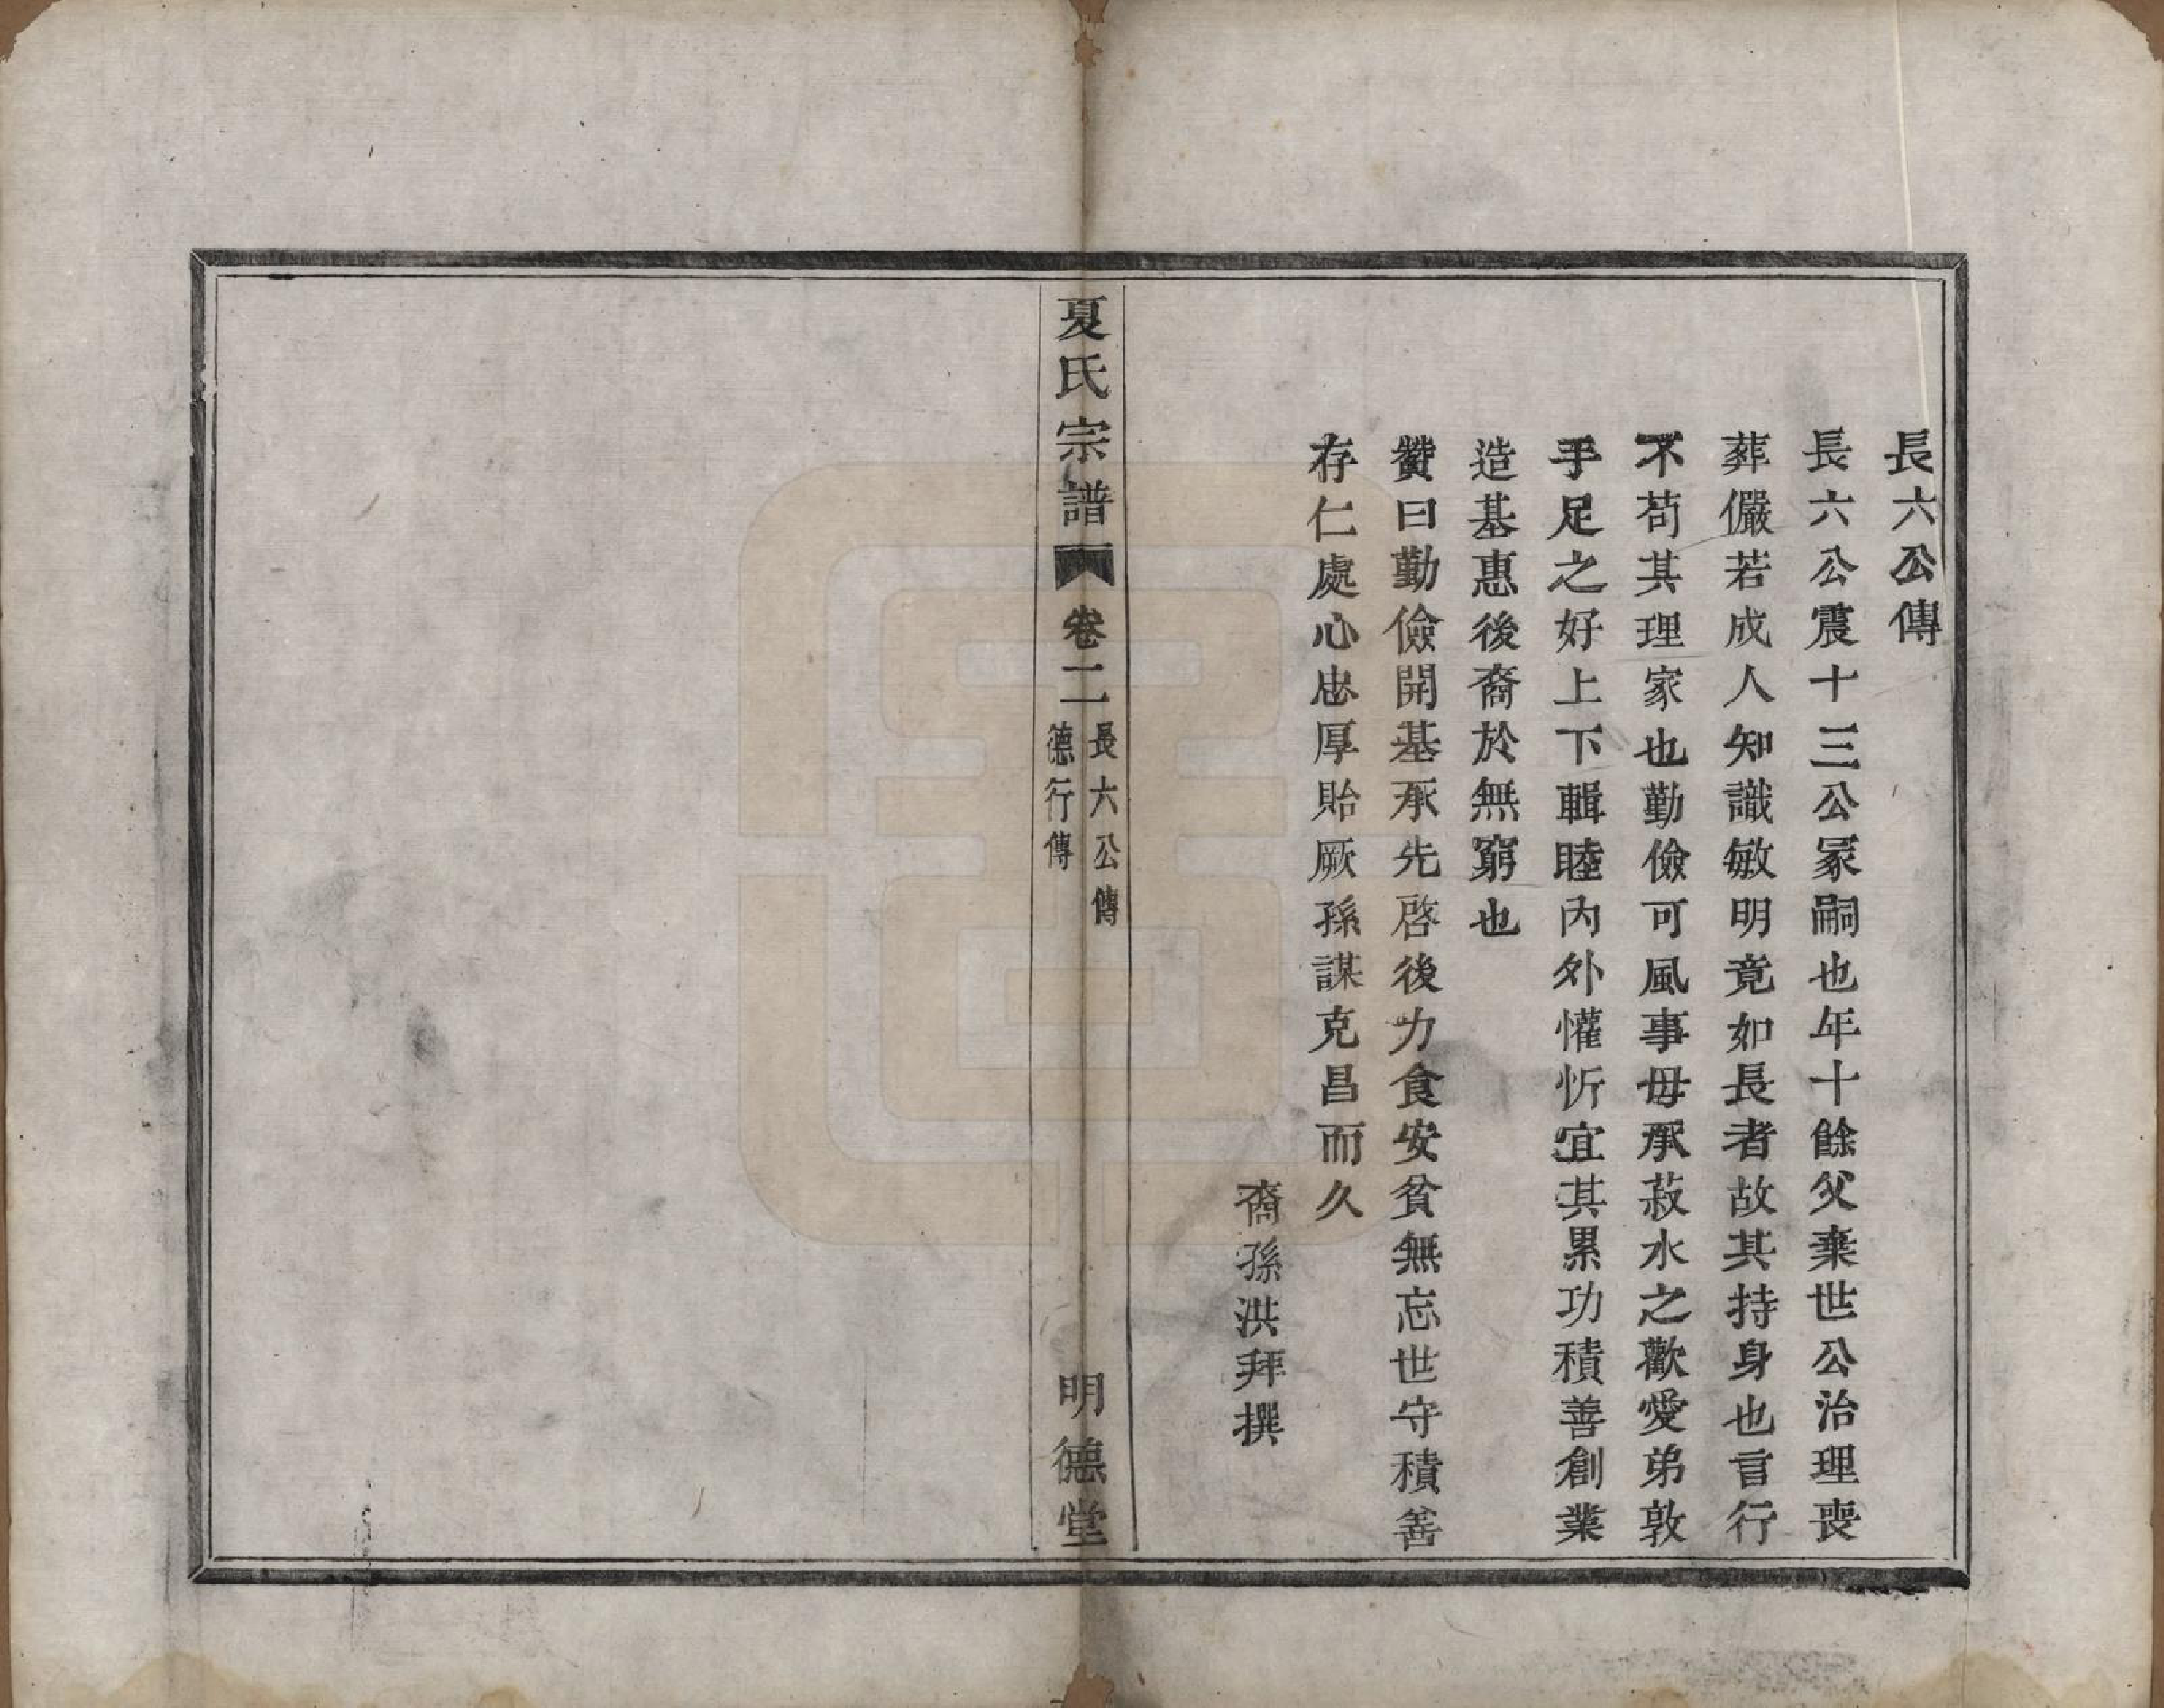 長六公傳
長六公震十三公冢嗣也年十餘父棄世公治理喪
葬儼若成人知識敏明竟如長者故其持身也言行
不苟其理家也勤儉可風事母承菽水之歡愛弟敦
手足之好上下輯睦內外懽忻宜其累功積善創業
造基惠後裔於無窮也
贊曰勤儉開基承先啓後力食安貧無忘世守積善
存仁處心忠厚貽厥孫謀克昌而久
裔孫洪拜撰
夏氏宗譜
卷二
長六公傳
德行傳
明德堂